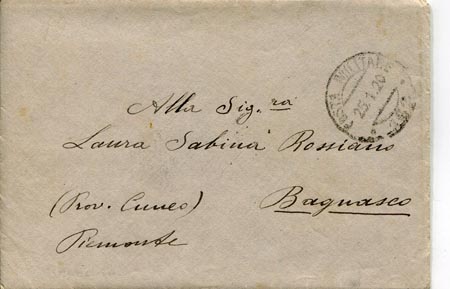 POSTA MILITARE
25.1.20
Alla Sig.ra
Laura Sabina Rossiano
(Prov. Cuneo)
Bagnasco
Piemonte